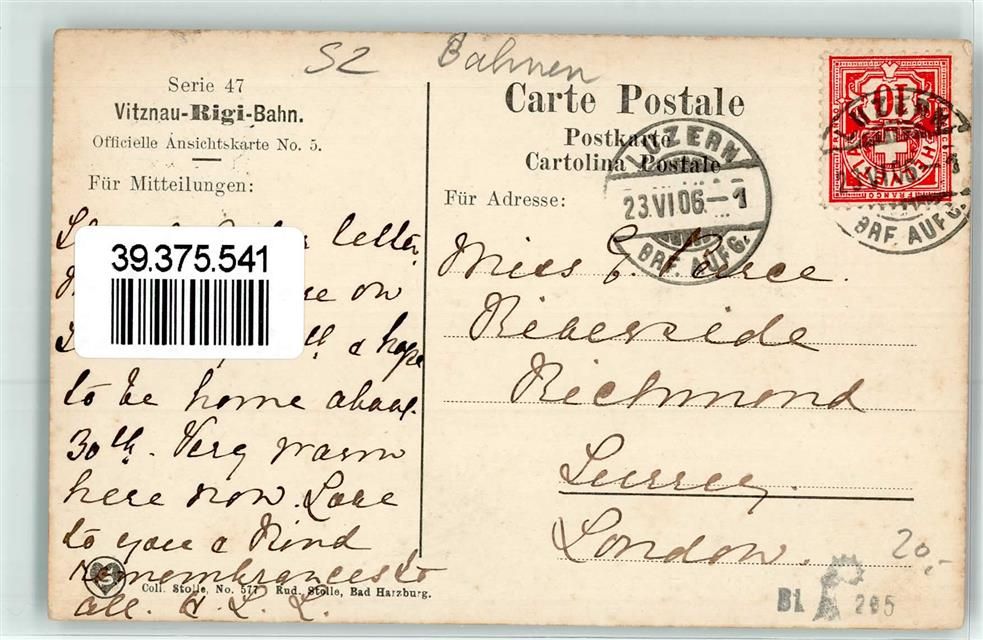 S2 Bahnen
Serie 47
Vitznau-Rigi-Bahn.
Officielle Ansichtskarte No. 5.
Für Mitteilungen:
Carte Postale
Postkarte
Cartolina Postale
Für Adresse:
LUZERN
23.VI.06.-1
BRF. AUFG.
10
HELVETIA
FRANCO
LUZERN
BRF. AUFG.
39.375.541
letter
on
a hope
to be home about
30th. Very warm
here now Love
to you & Kind
remembrances to
all.
Miss E. Pearce.
Riverside
Richmond
Surrey.
London.
Coll. Stolle, No. 577 Rud. Stolle, Bad Harzburg.
20,-
Bi 205